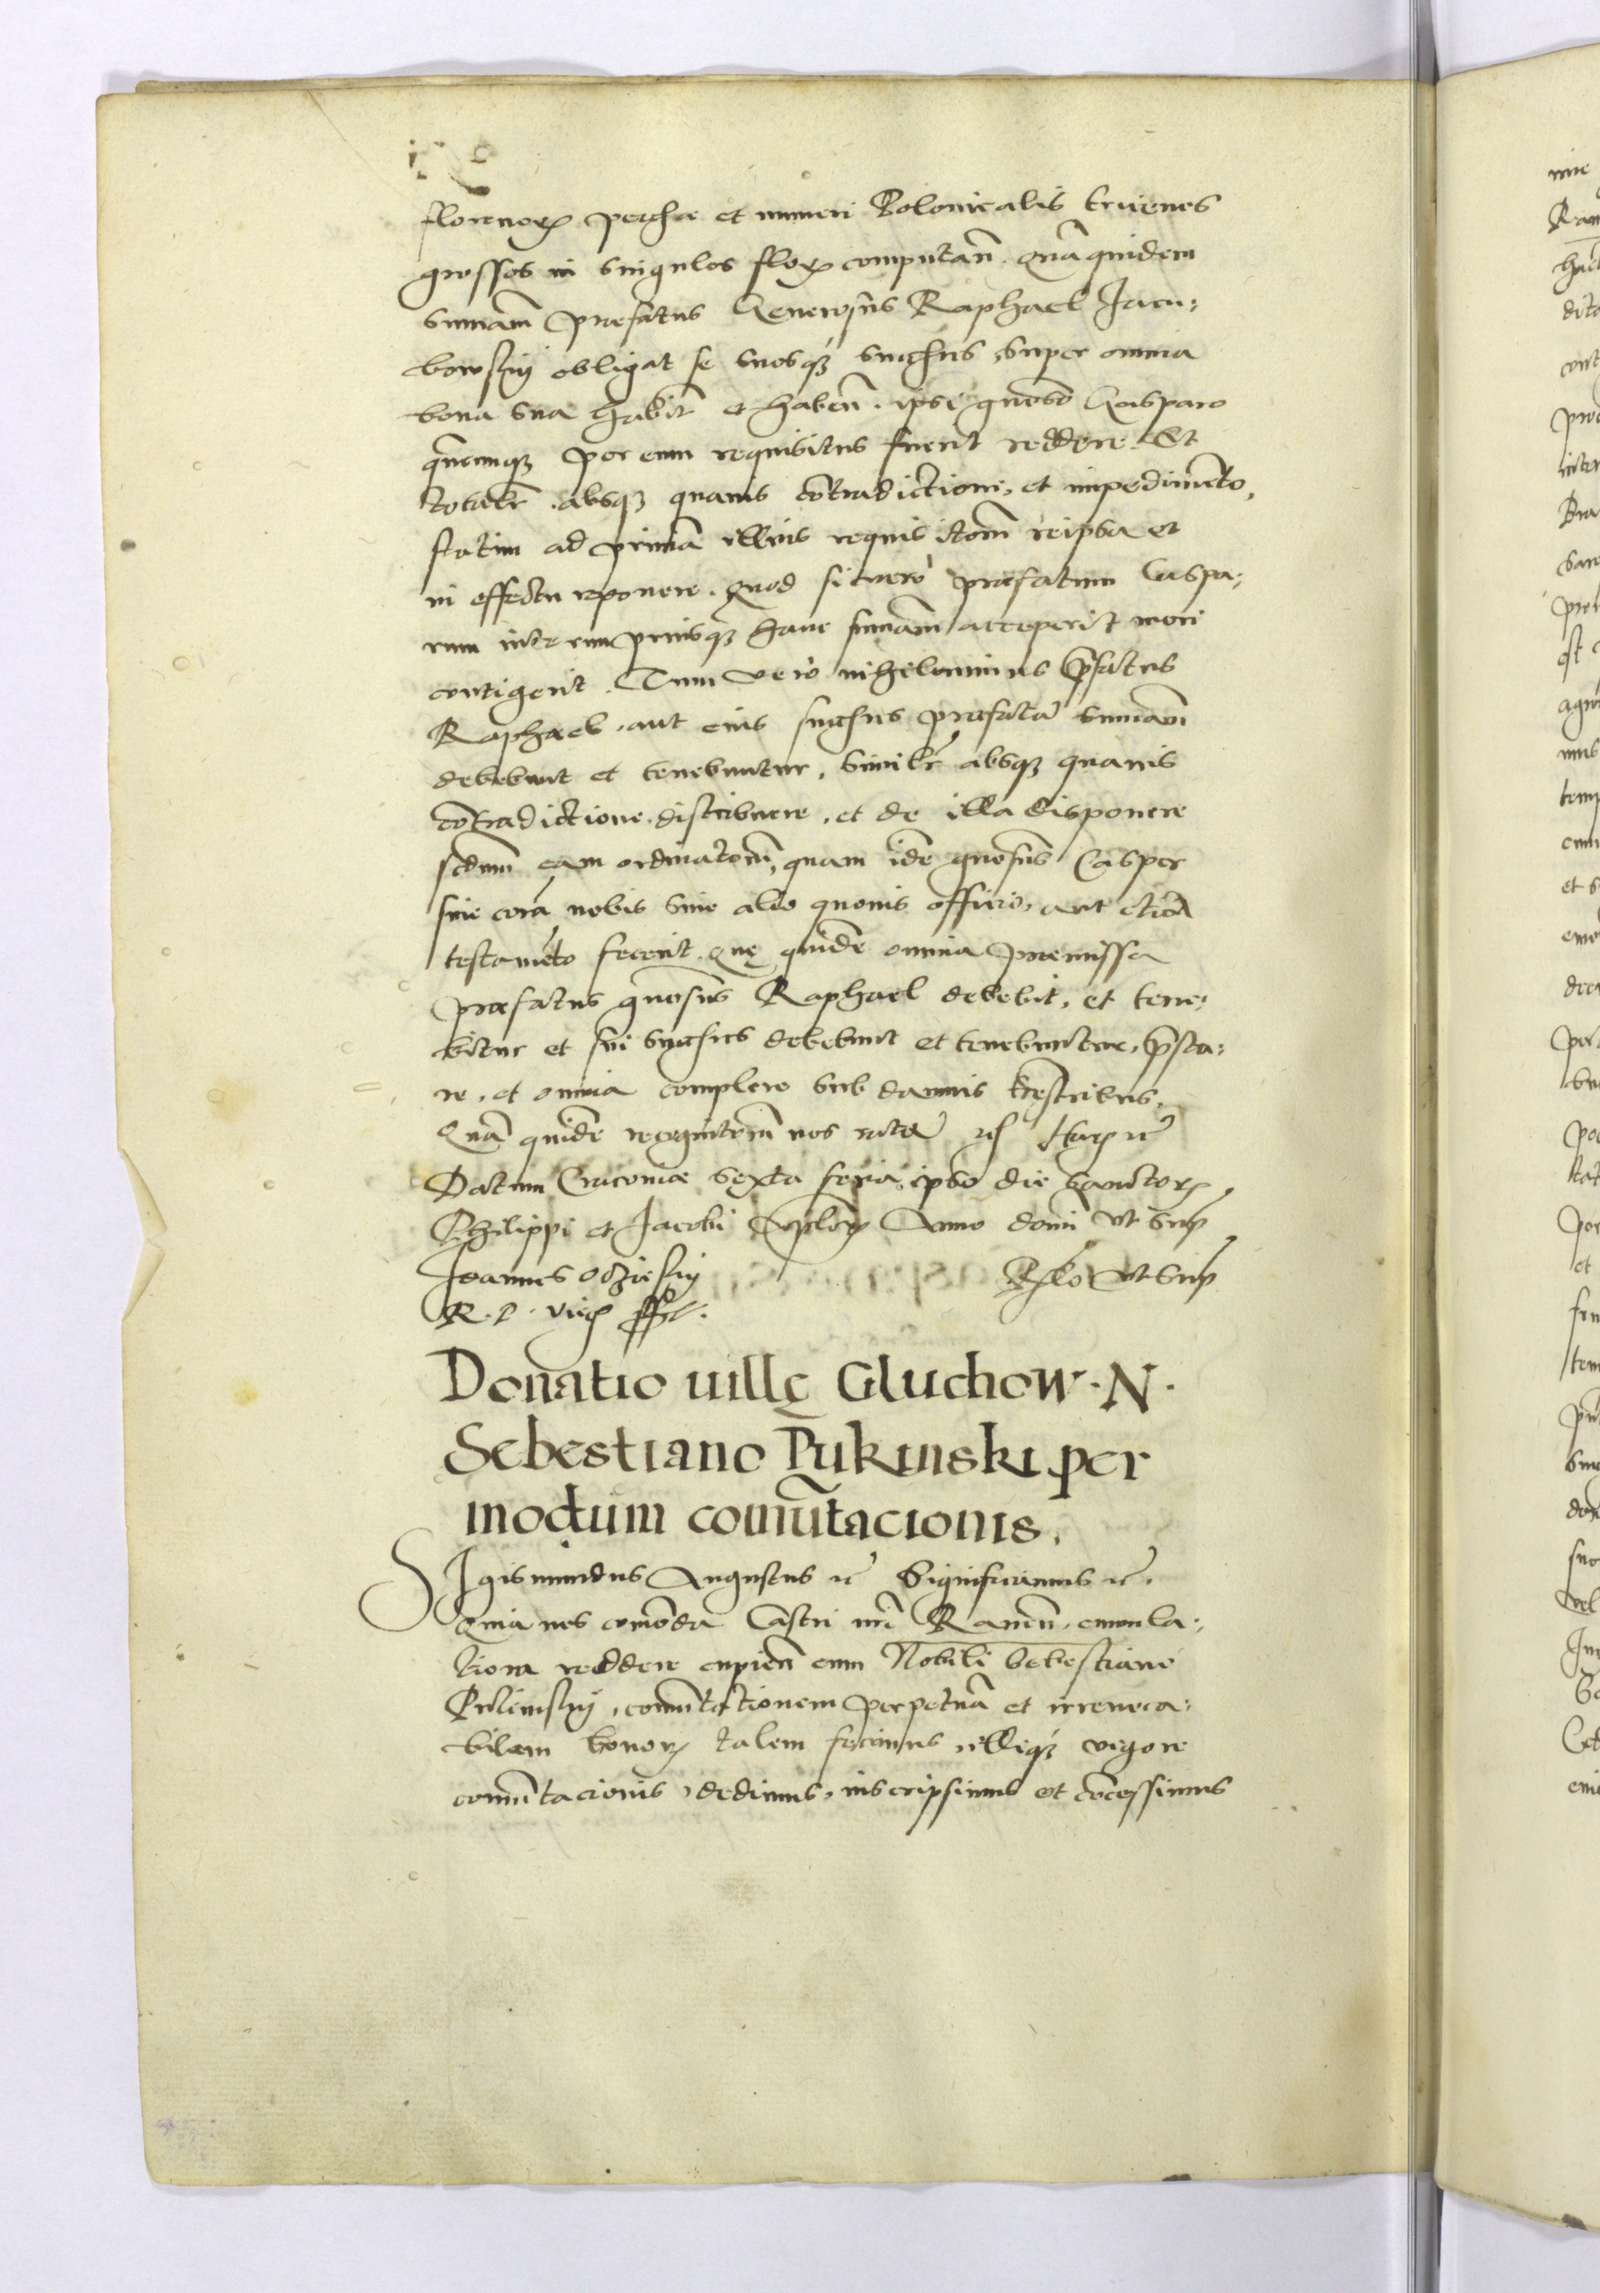 florenorum pecuniae et numeri Polonicalis tricenos
grossos in singulos florum computan. Quam quidem
summam praefatus Generosus Raphael Jacu:
bowskij obligat se suosque successores super omnia
bona sua habita et haben. ipsi generoso Casparo
quocumque per eum requisitus fuerit reddere. Et
totaliter absque quavis contradictione, et impedimento,
statim ad primam illius requisitionem reipsa et
in effectu reponere. Quod si vero praefatum Caspa:
rum interim priusquam hanc summam acceperit mori
contigerit. Tum vero nihilominus praefatus
Raphael aut eius successores praefatam summam
debebunt et tenebuntur, similiter absque quavis
contradictione distribuere, et de illa disponere
secundum eam ordinationem, quam idem generosus Casper
sive coram nobis sive alio quovis officio, aut etiam
testamento fecerit. Quę quidem omnia praemissa
praefatus generosus Raphael debebit, et tene:
bitur et sui successores debebunt et tenebuntur, praesta:
re, et omnia complere sub damnis terrestribus.
Quam quidem recognitionem nos ratam etc Harum etc
Datum Cracoviae sexta feria ipso die Sanctorum
Philippi et Jacobi Aplorum Anno domini ut supra
Joannes Oczieskij
R. P. vicecancellarius sst.
Relatio ut supra
Donatio uillę Gluchow . N .
Sebestiano Pukinski per
modum comutacionis.
Sigismundus Augustus etc Significamus etc.
Quia nos comoda Castri nri Raven. emola:
tiora reddere cupien cum Nobili Sebestiano
Pukinskij, comutationem perpetuam et irrevoca:
bilem bonorum talem fecimus, illique vigore
comutacionis, dedimus, inscripsimus et concessimus